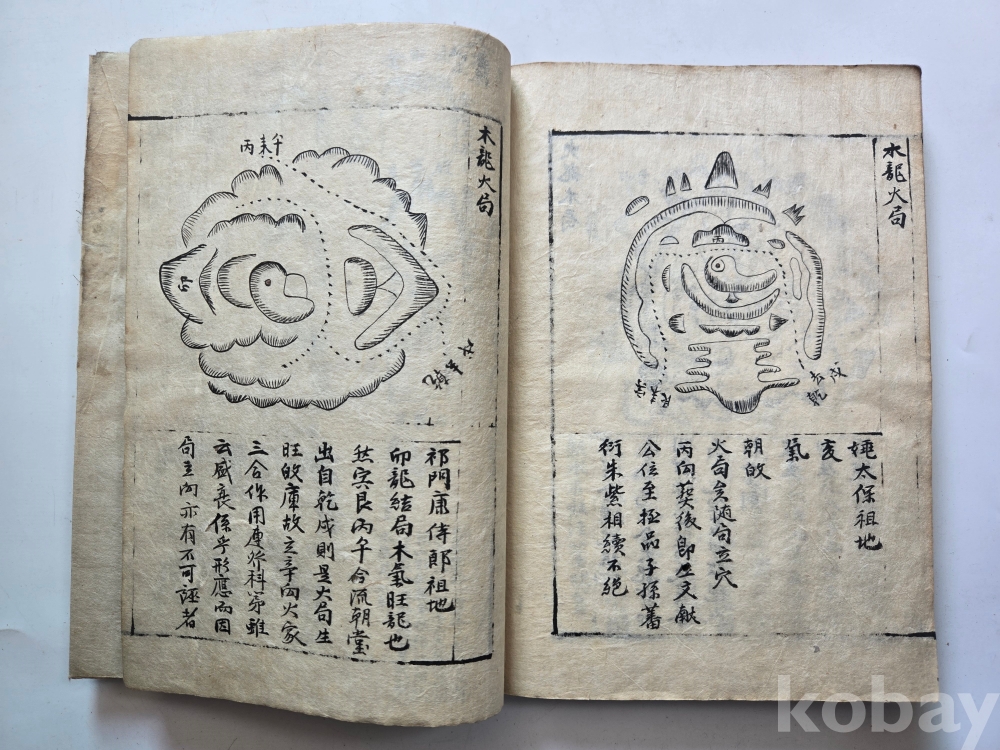 水龍火局
丙
乾
戌
姚太保祖地
亥
氣
朝
火局矣随勾立穴
丙向葬後即生文献
公位至極品子孫蕃
衍朱紫相續不絶
木龍火局
丙
未
午
卯
乾
祁門康侍郎祖地
卯龍結局木氣旺龍也
然寅艮丙午合流朝堂
出自乾戌則是火局生
旺故庫故立辛丙火家
三合作用慶於科第雖
云盛衰係乎形應而因
局立向亦有不可誣者
kobay